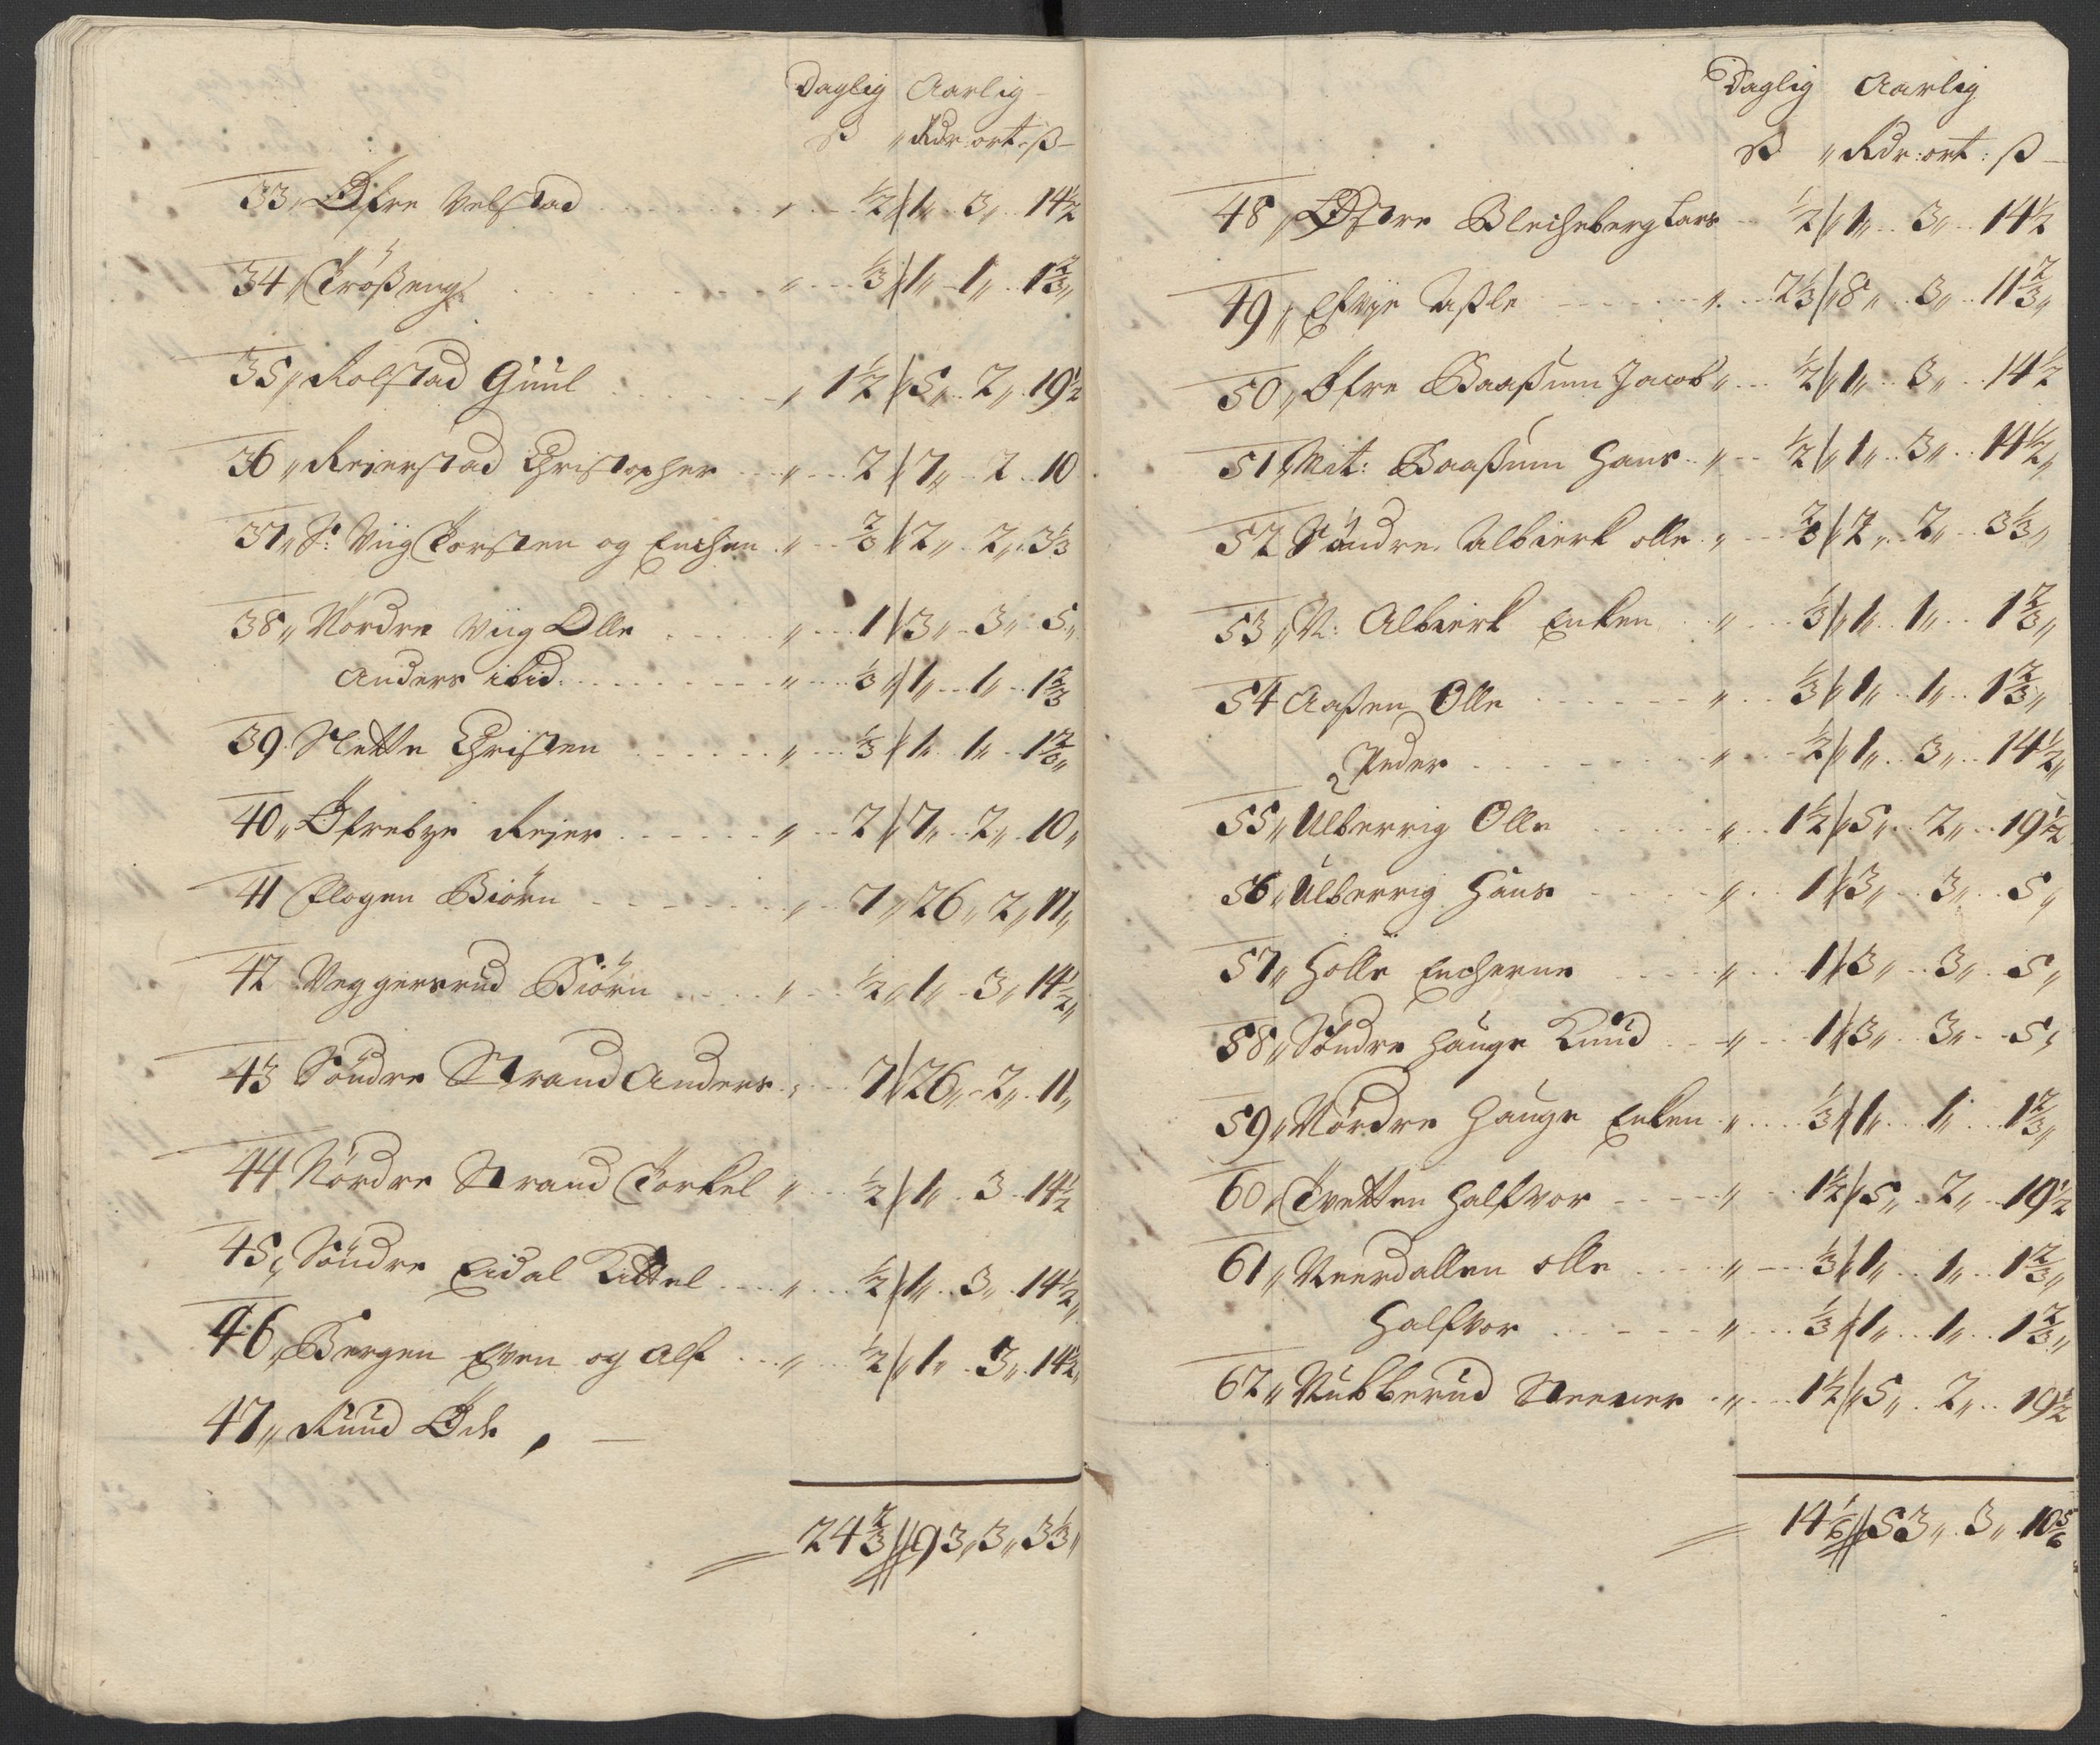 Daglig Aarlig
ß „ Rdr: ort: ß
33 „ Øfre Velstad ½ „ 1 „ 3 „ 14½
34 „ Trößeng „ ⅓ „ 1 „ 1 „ 1⅔ „
35 „ Rolstad Guul „ 1½ „ 5 „ 2 „ 19½
36 „ Reierstad Christopher „ 2 „ 7 „ 2 10
37 „ S: Viig Torsten og Enchen „ ⅔ „ 2 „ 2 „ 3⅓
38 „ Nordre Viig Olle „ 1 „ 3 „ 3 „ 5 „
Anders ibid. „ ⅓ „ 1 „ 1 „ 1⅔
39 Slette Christen „ ⅓ „ 1 „ 1 „ 1⅔ „
40 „ Øfrebye Reier „ 2 „ 7 „ 2 „ 10 „
41 Plogen Biörn „ 7 „ 26 „ 2 „ 11 „
42 Veggersrud Biörn „ ½ „ 1 „ 3 „ 14½ „
43 Söndre Strand Anders „ 7 „ 26 „ 2 „ 11 „
44 Nördre Strand Torkel „ ½ „ 1 „ 3 14½
45 „ Söndre Eidal Kittel „ ½ „ 1 „ 3 „ 14½ „
46 „ Bergen Even og Alf „ ½ „ 1 „ 3 „ 14½ „
47 „ Ruud Öde „ —
24⅔ „ 93 „ 3 „ 3⅓ „
Daglig Aarlig
ß „ Rdr: ort: ß
48 „ Østre Blecheberg Lars ½ „ 1 „ 3 „ 14½
49 „ Efvje Aßle „ 2⅓ „ 8 „ 3 „ 11⅔ „
50 „ Øfre Baaßum Jacob „ ½ „ 1 „ 3 „ 14½
51 „ Mit: Baaßum Hans „ ½ „ 1 „ 3 „ 14½ „
52 Söndre Albierk olle „ ⅔ „ 2 „ 2 „ 3⅓ „
53 „ N: Albierk Enken „ ⅓ „ 1 „ 1 „ 1⅔ „
54 Aaßen Olle „ ⅓ „ 1 „ 1 „ 1⅔ „
Peder „ ½ „ 1 „ 3 „ 14½ „
55 „ Ulberrig Olle „ 1½ „ 5 „ 2 „ 19½
56 „ Ulberrig Hans „ 1 „ 3 „ 3 „ 5 „
57 „ Holle Encherne „ 1 „ 3 „ 3 „ 5 „
58 „ Söndre Hauge Knud „ 1 „ 3 „ 3 „ 5 „
59 „ Nördre Hauge Enken „ ⅓ „ 1 „ 1 „ 1⅔ „
60 „ Tvetten Halfvor „ 1½ „ 5 „ 2 „ 19½
61 „ Neerdallen olle „ ⅓ „ 1 „ 1 „ 1⅔ „
Halfvor „ ⅓ „ 1 „ 1 „ 1⅔ „
62 „ Nubberud Steener „ 1½ „ 5 „ 2 „ 19½
14⅙ „ 53 „ 3 „ 10⅚